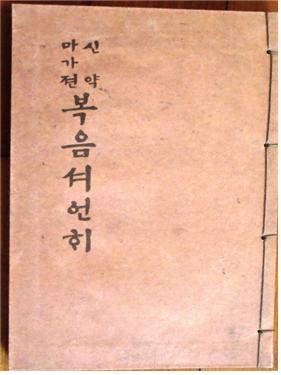 신약
마가젼
복음셔언ᄒᆡ